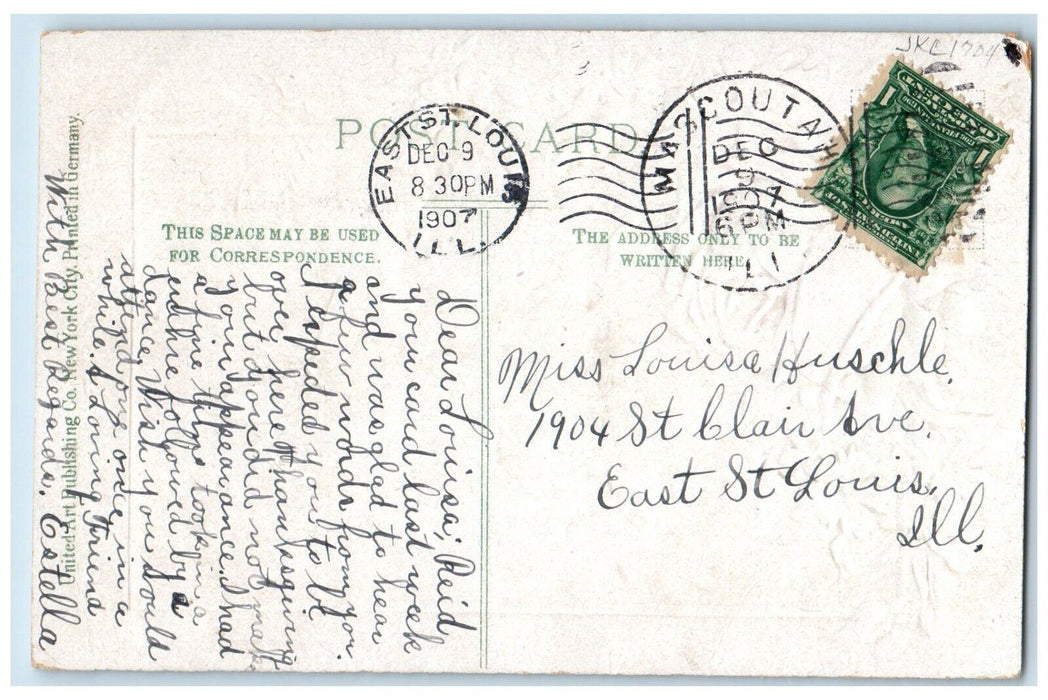 JKC1704
POST CARD
EAST ST. LOUIS
DEC 9
8 30PM
1907
ILL.
MASCOUTAH
DEC
9
1907
6 PM
ILL
THIS SPACE MAY BE USED
FOR CORRESPONDENCE.
THE ADDRESS ONLY TO BE
WRITTEN HERE
Miss Louisa Huschle.
1904 St Clair Ave.
East St Louis,
Ill.
Dear Louisa; Reid
your card last week
and was glad to hear
a few words from you.
I expeded you to be
over here thanksgiving
but you did not make
your appearance. I had
a fine time took in a
euhre followed by a
dance, Wish you would
attend one once in a
while. A Loving Friend
With Best Regards. Estella
United Art Publishing Co. New York City. Printed in Germany.